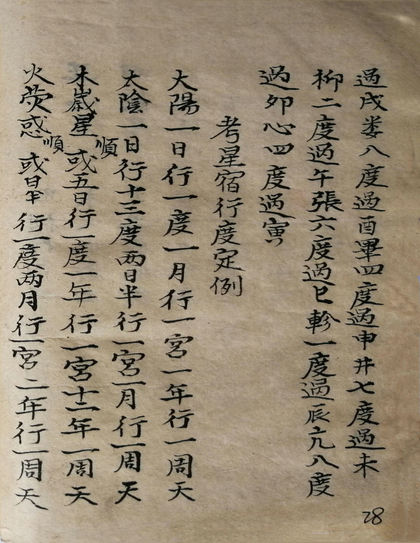 過戌娄八度過酉畢四度過申井七度過未
柳二度過午張六度過巳軫一度過辰亢八度
過卯心四度過寅
考星宿行度定例
太陽一日行一度一月行一宮一年行一周天
太陰一日行十三度兩日半行一宮一月行一周天
木歲星順或五日行一度一年行一宮十二年一周天
火熒惑順或日半行一度兩月行一宮二年行一周天
28